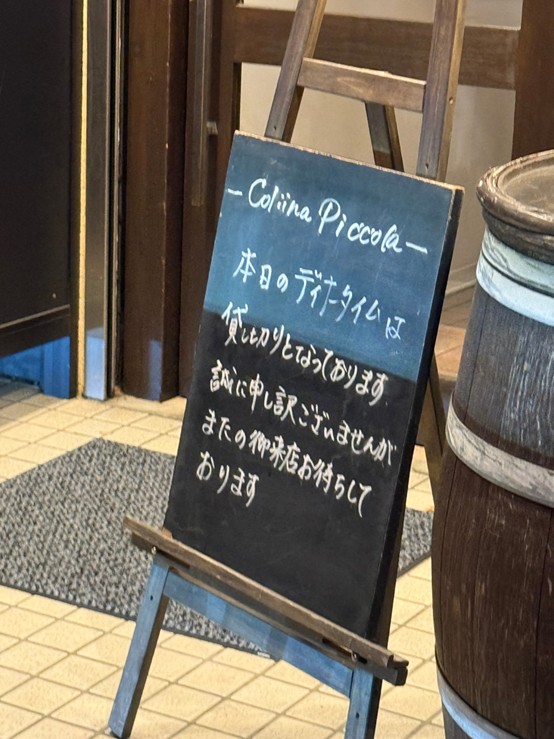 — Coliina Piccola —
本日のディナータイムは
貸し切りとなっております
誠に申し訳ございませんが
またの御来店お待ちして
おります